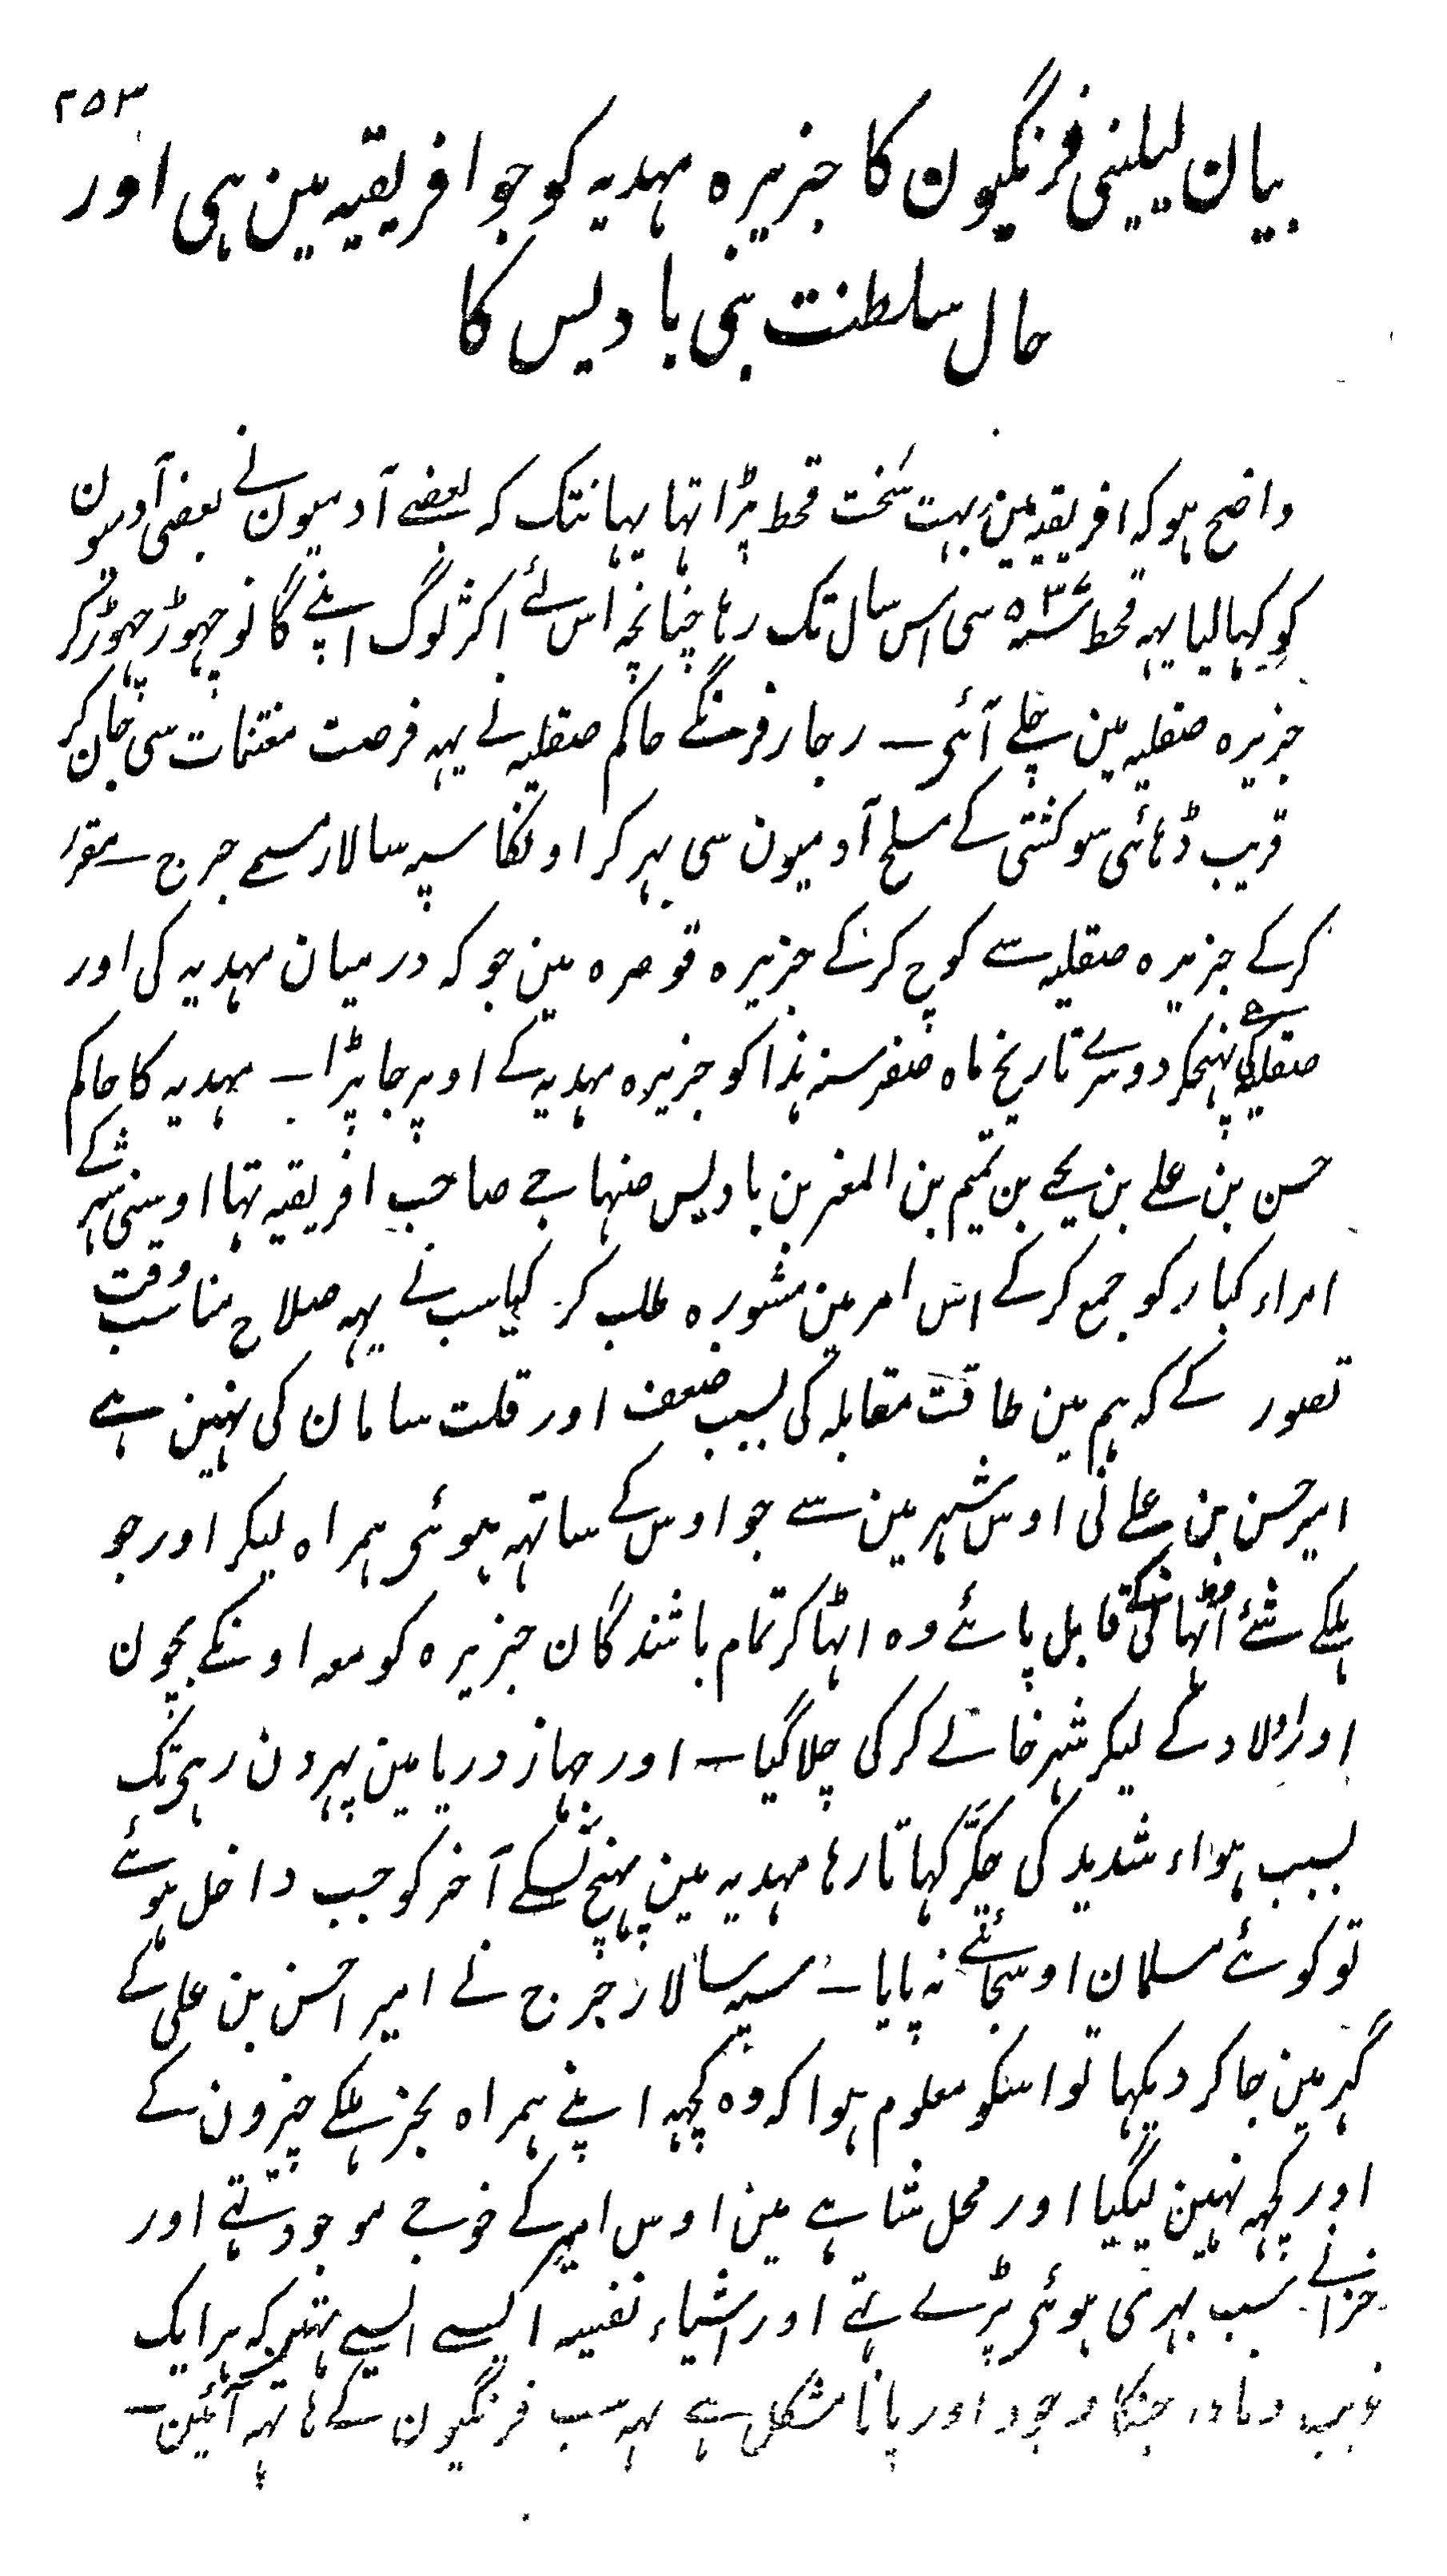 ۲۵۳
بیان لیلینی فرنگیون کا جزیرہ مہدیہ کو جو افریقیہ مین ہی اور
حال سلطنت بنی بادیس کا
واضح ہو کہ افریقیہ مین بہت سخت قحط پڑا تہا یہانتک کہ بعضے آدمیون نے بعضی آدمیون
کو کہا لیا یہہ قحط سنہ ۵۳۷ سی اس سال تک رہا چنانچہ اس لئے اکثر لوگ اپنے گانو چہوڑ چہوڑ کر
جزیرہ صقلیہ مین چلے آئی۔ رجار فرنگے حاکم صقلیہ نے یہہ فرصت مغتنمات سی جان کر
قریب ڈہائی سو کشتی کے مسلح آدمیون سی بہر کر اونکا سپہ سالار مسمے جرج مقرر
کر کے جزیرہ صقلیہ سے کوچ کر کے جزیرہ قوصرہ مین جو کہ درمیان مہدیہ کی اور
صقلیہ کی ہے پہنچکر دوسرے تاریخ ماہ صفر سنہ ہذا کو جزیرہ مہدیہ کے اوپر جا پڑا۔ مہدیہ کا حاکم
حسن بن علے بن یحے بن تمیم بن المعز بن بادیس صنہاجے صاحب افریقیہ تہا اوسنی شہر کے
امراء کبار کو جمع کر کے اس امر مین مشورہ طلب کر کیا سب نے یہہ صلاح مناسب وقت
تصور کے کہ ہم مین طاقت مقابلہ کی بسبب ضعف اور قلت سامان کی نہین ہے
امیر حسن بن علے نی اوس شہر مین سے جو اوس کے ساتہہ ہوئی ہمراہ لیکر اور جو
ہلکے شئے اٹہانیکی قابل پائے وہ اٹہا کر تمام باشندگان جزیرہ کو معہ اونکے بچون
اور اولاد کے لیکر شہر خالے کر کی چلا گیا۔ اور جہاز دریا مین پہر دن رہی تک
بسبب ہواء شدید کی چکر کہاتا رہا مہدیہ مین پہنچ نسکے آخر کو جب داخل ہوئے
تو کوئے مسلمان اوسجائے نہ پایا۔ سپہ سالار جرج نے امیر حسن بن علی کے
گہر مین جا کر دیکہا تو اسکو معلوم ہوا کہ وہ کچہہ اپنے ہمراہ بجز ہلکے چیزون کے
اور کچہہ نہین لیگیا اور محل شاہے مین اوس امیر کے خوجے موجود تہے اور
خزانے سب بہری ہوئی پڑے تہے اور اشیاء نفیسہ ایسے ایسے تہین کہ ہر ایک
غریب و نادر جنکا وجود اور پانا مشکل ہے یہہ سب فرنگیون کے ہاتہہ آئین۔